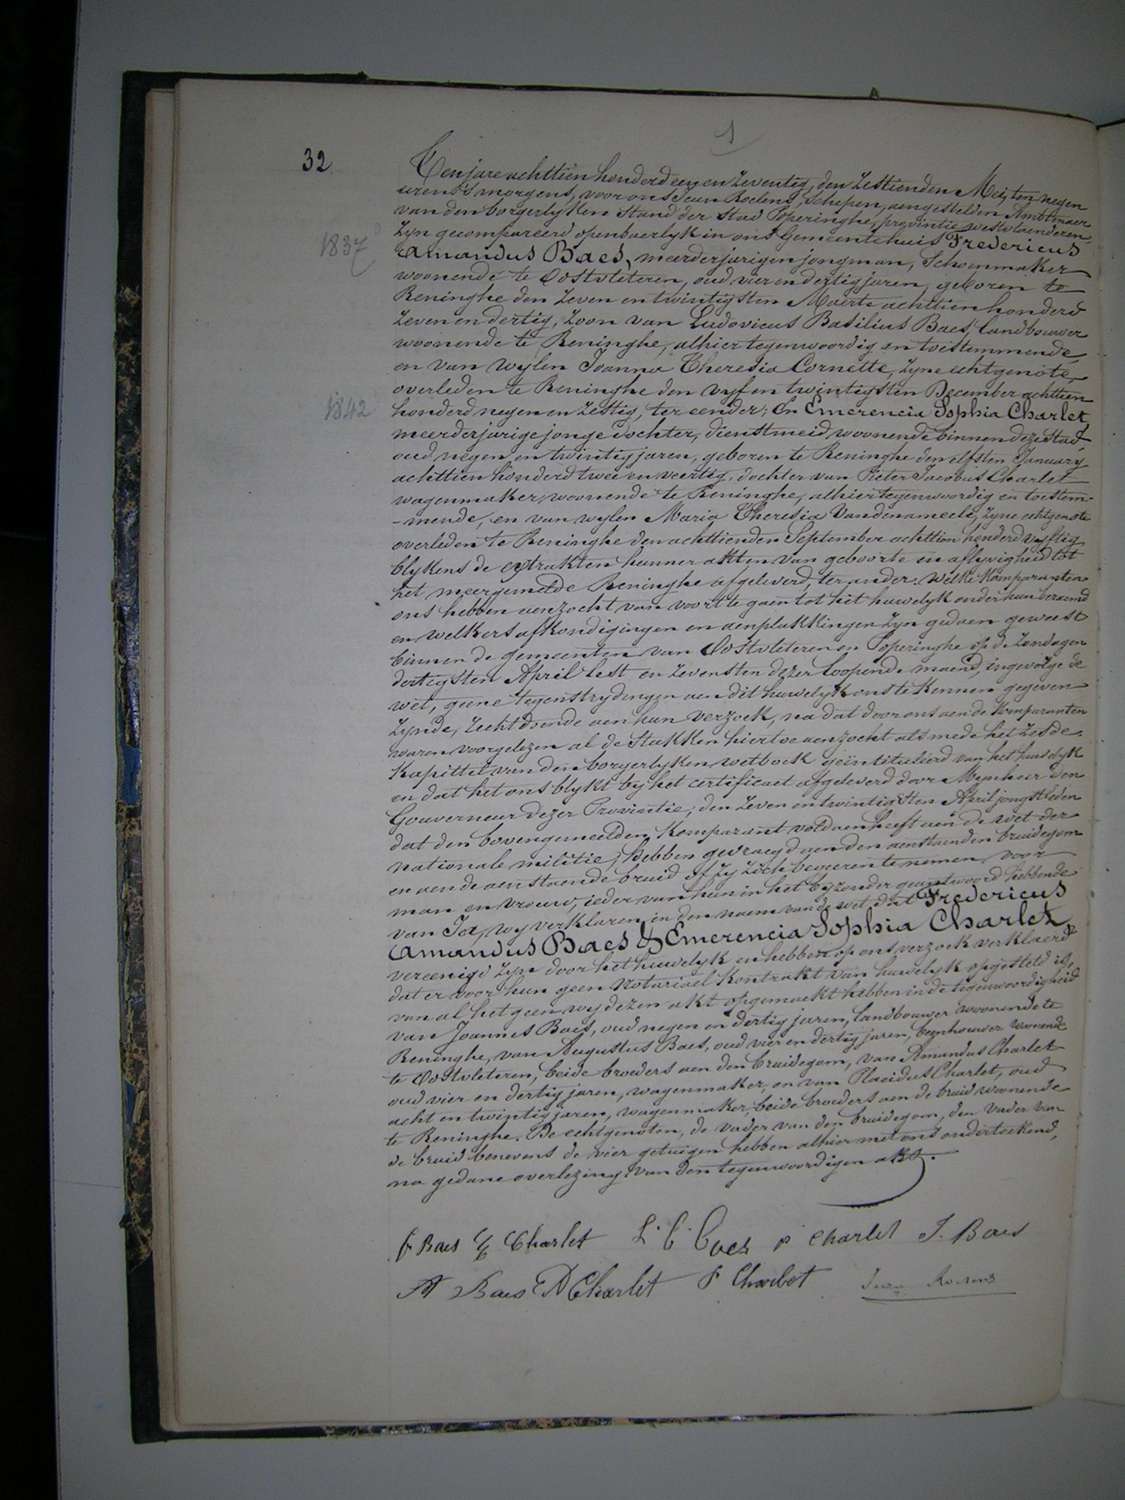 1
32
Ten jare achttien honderd een en zeventig, den zestienden Mei, ten negen
uren 's morgens, voor ons Jean Roelens, schepen, aengestelden Ambtenaer
van den borgerlyken Stand der Stad Poperinghe, provintie westvlaenderen
zyn gecompareerd openbaerlyk in ons Gemeentehuis Fredericus
1837
Amandus Baes, meerderjarigen jongman, Schoenmaker
woonende te Oostvleteren, oud vier en dertig jaren, geboren te
Reninghe den zeven en twintigsten Maerte achttien honderd
zeven en dertig, zoon van Ludovicus Basilius Baes, landbouwer
woonende te Reninghe, alhier tegenwoordig en toestemmende,
en van wylen Joanna Theresia Cornette, zyne echtgenote,
overleden te Reninghe den vyf en twintigsten December achttien
1842
honderd negen en zestig, ter eender; En Emerencia Sophia Charlet
meerderjarige jonge dochter, dienstmeid, woonende binnen deze Stad,
oud negen en twintig jaren, geboren te Reninghe den elfsten January
achttien honderd twee en veertig, dochter van Pieter Jacobus Charlet
wagenmaker, woonende te Reninghe, alhier tegenwoordig en toestem-
-mende, en van wylen Maria Theresia Vandenameele, zyne echtgenote
overleden te Reninghe den achttienden September achttien honderd vyftig
blykens de extrakten hunner akten van geboorte en aflyvigheid tot
het meergemelde Reninghe afgeleverd, ter ander. Welke komparanten
ons hebben aenzocht van voort te gaen tot het huwelyk onder hun beraemd
en welkers afkondigingen en aenplakkingen zyn gedaen geweest
binnen de gemeenten van Oostvleteren en Poperinghe op de zondagen
dertigsten April lest en zevensten dezer loopende maend, ingevolge de
wet, geene tegenstrydingen aen dit huwelyk ons te kennen gegeven
zynde, recht doende aen hun verzoek, na dat door ons aen de komparanten
waren voorgelezen al de Stukken hiertoe aenzocht alsmede het zesde
Kapittel van den borgerlyken wetboek geintituleerd van het huwelyk
en dat het ons blykt by het certificaet afgeleverd door Mynheer den
Gouverneur dezer Provintie, den zeven en twintigsten April jongstleden
dat den bovengemelden Komparant voldaen heeft aen de wet der
nationale militie, hebben gevraegd aen den aenstaenden bruidegom
en aen de aenstaende bruid of zy zich begeeren te nemen voor
man en vrouw, ieder van hun in het byzonder geantwoord hebbende
van Ja, wy verklaren in den naem van de wet, dat Fredericus
Amandus Baes & Emerencia Sophia Charlet
vereenigd zyn door het huwelyk en hebben op ons verzoek verklaerd
dat er voor hun geen Notariael Kontrakt van huwelyk opgesteld is,
van al het geen wy dezen akt opgemaekt hebben in de tegenwoordigheid
van Joannes Baes, oud negen en dertig jaren, landbouwer woonende te
Reninghe, van Augustus Baes, oud vier en dertig jaren, beenhouwer woonende
te Oostvleteren, beide broeders aen den bruidegom, van Amandus Charlet
oud vier en dertig jaren, wagenmaker, en van Placidus Charlet, oud
acht en twintig jaren, wagenmaker, beide broeders aen de bruid woonende
te Reninghe. De echtgenoten, de vader van den bruidegom, den vader van
de bruid benevens de vier getuigen hebben alhier met ons onderteekend,
na gedane overlezing van den tegenwoordigen akt.
F Baes E Charlet L B Baes P Charlet J. Baes
A Baes A Charlet P Charlet Jean Roelens